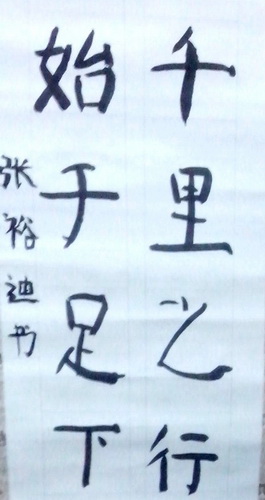 千里之行
始于足下
张裕迪书